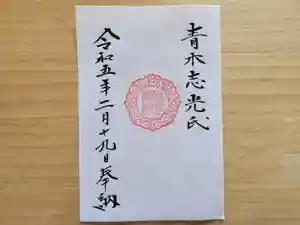 青木志光氏
令和五年二月十九日奉納